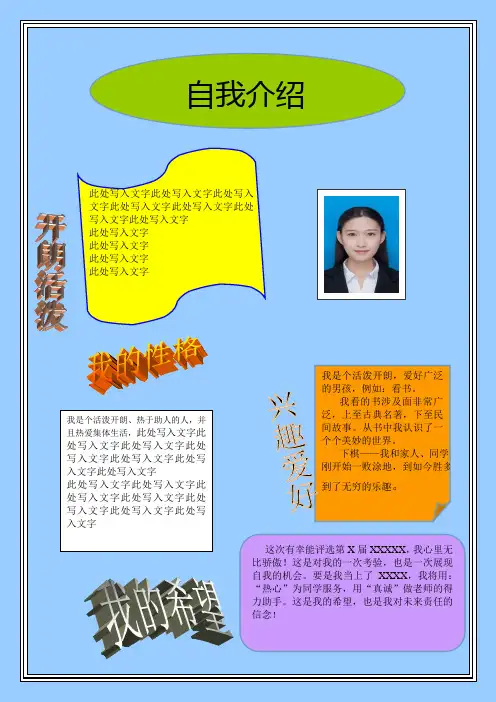 自我介绍
此处写入文字此处写入文字此处写入
文字此处写入文字此处写入文字此处
写入文字此处写入文字
此处写入文字
此处写入文字
此处写入文字
此处写入文字
开朗活泼
我的性格
我是个活泼开朗、热于助人的人，并
且热爱集体生活，此处写入文字此
处写入文字此处写入文字此处写
入文字此处写入文字此处写
入文字此处写入文字
此处写入文字此处写入文字此
处写入文字此处写入文字此处
写入文字此处写入文字此处写
入文字
兴趣爱好
我是个活泼开朗，爱好广泛
的男孩，例如：看书。
我看的书涉及面非常广
泛，上至古典名著，下至民
间故事。从书中我认识了一
个个美妙的世界。
下棋——我和家人、同学
刚开始一败涂地，到如今胜多
到了无穷的乐趣。
我的希望
这次有幸能评选第 X 届 XXXXX，我心里无
比骄傲！这是对我的一次考验，也是一次展现
自我的机会。要是我当上了 XXXX，我将用：
“热心”为同学服务，用“真诚”做老师的得
力助手。这是我的希望，也是我对未来责任的
信念！